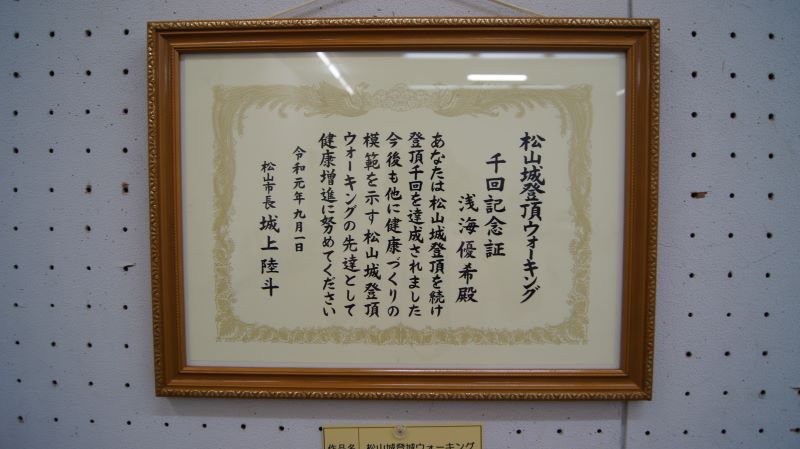 松山城登頂ウォーキング
千回記念証
浅海優希殿
あなたは松山城登頂を続け
登頂千回を達成されました
今後も他に健康づくりの
模範を示す松山城登頂
ウォーキングの先達として
健康増進に努めてください
令和元年九月一日
松山市長 城上陸斗
作品名 松山城登城ウォーキング